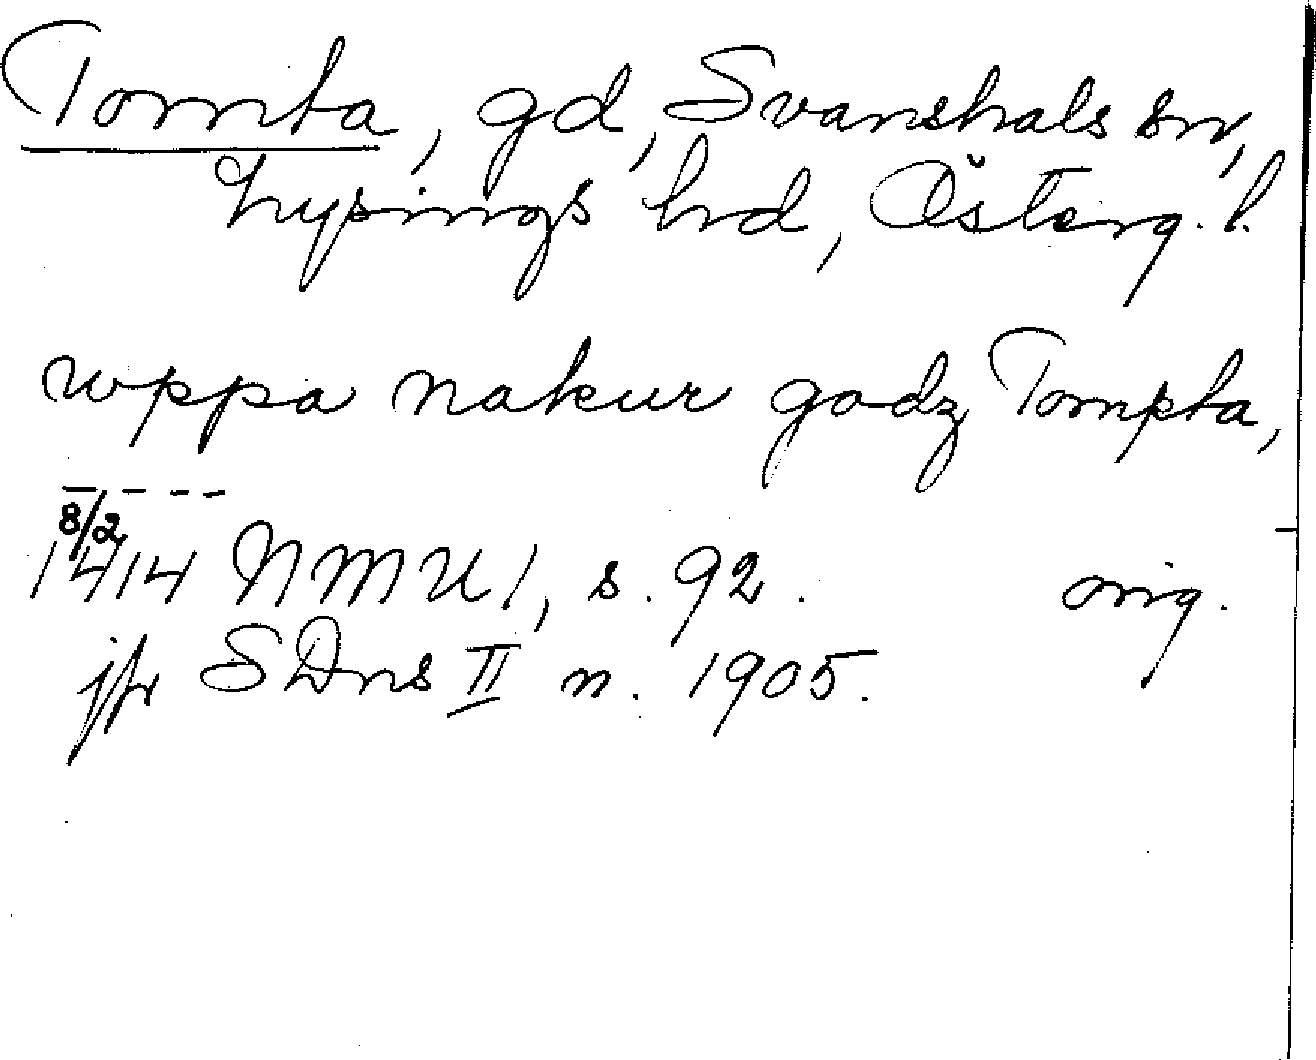 Tomta, gd, Svanshals sn,
Lysings hd, Österg. l.
uppa nakur godz Tompta,
– – – –
8/2
1414 NMU 1, s. 92. orig.
jfr SDns II n. 1905.